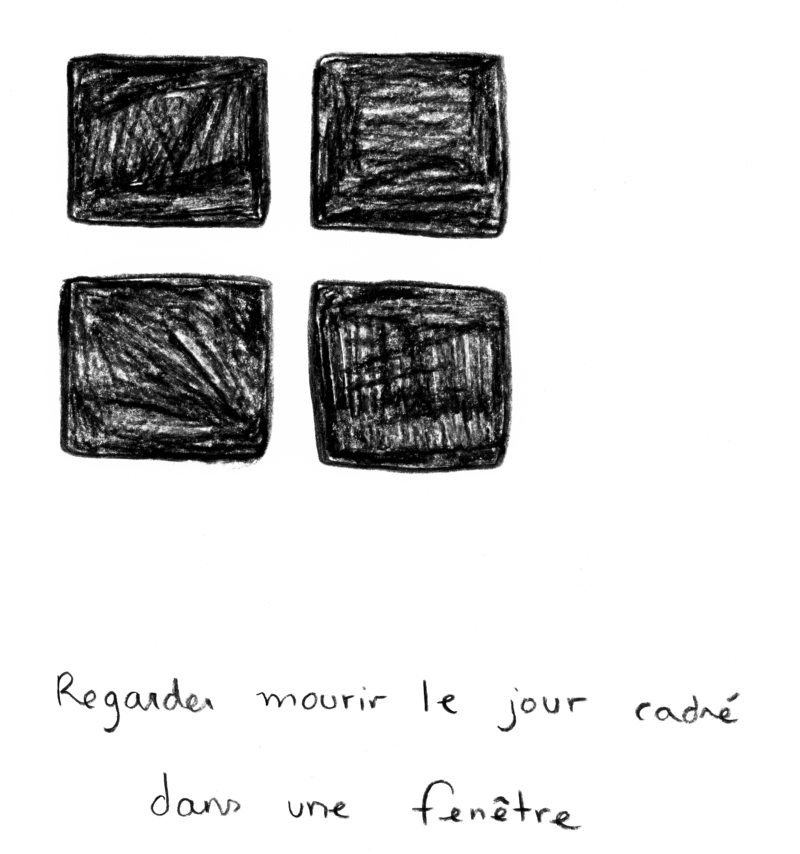 Regarder mourir le jour cadré
dans une fenêtre